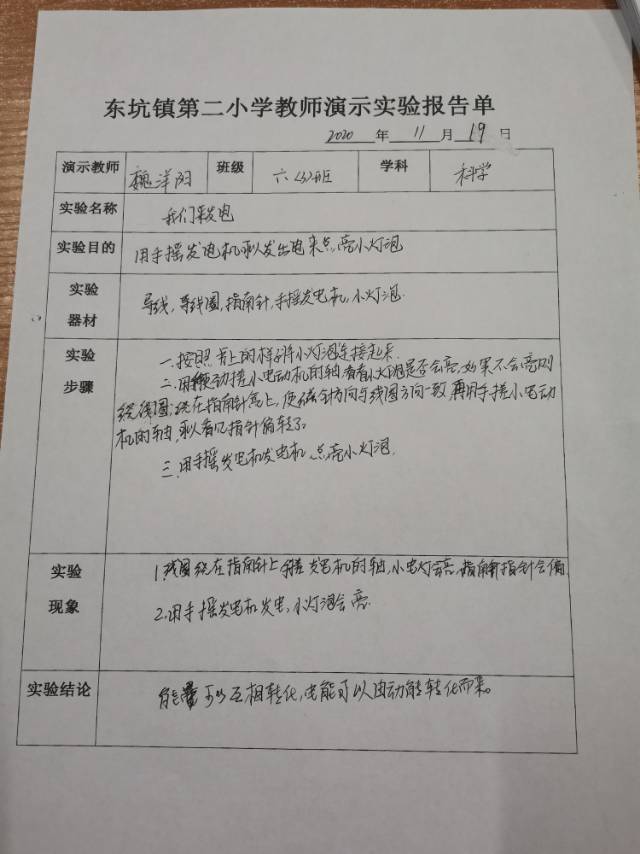 东坑镇第二小学教师演示实验报告单
2020 年 11 月 19 日
演示教师 魏洋阳 班级 六 班 学科 科学
实验名称 我们来发电
实验目的 用手摇发电机 发出电来点亮小灯泡
实验器材 导线,导线圈,指南针,手摇发电机,小灯泡.
实验步骤 一.按照 上的样子将小灯泡连接起来.
二.用 动搓小电动机的轴看看小灯泡是否会亮,如果不会亮则
绕线圈绕在指南针 上,使磁针方向与线圈方向一致,再用手搓小电动
机的轴, 看见指针偏转了.
三.用手摇发电机发电机 点亮小灯泡.
实验现象 1.线圈绕在指南针上 搓发电机的轴,小电灯会亮,指南针指针会偏
2.用手摇发电机发电,小灯泡会亮.
实验结论 能量可以互相转化,电能可以由动能转化而来。